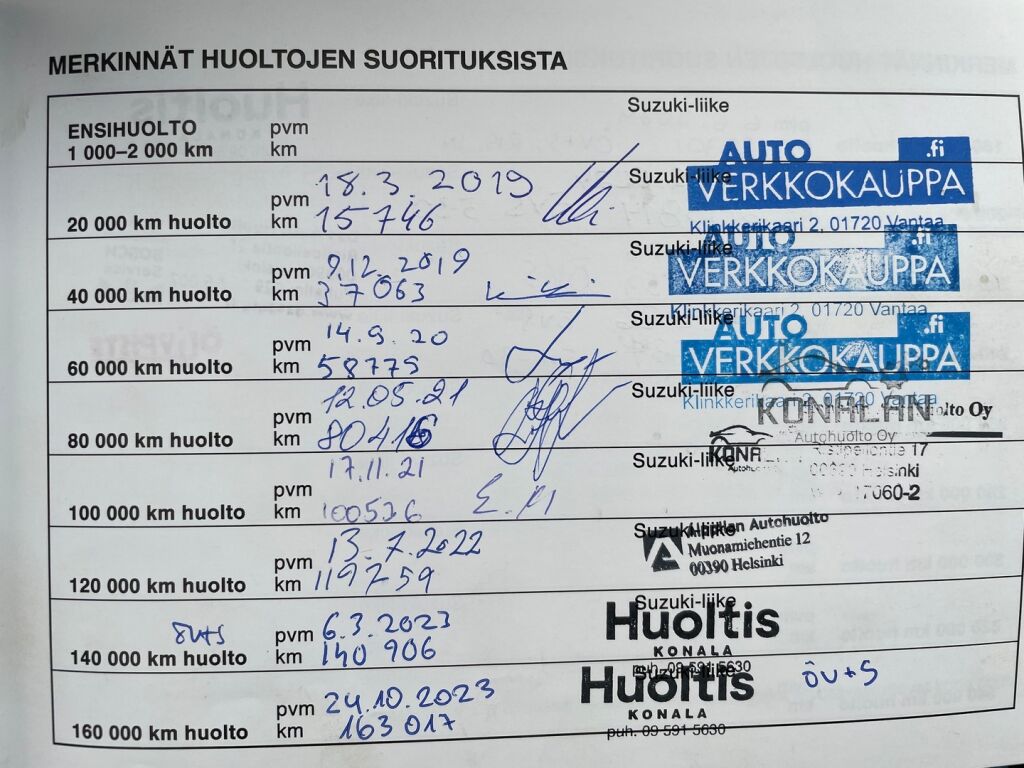 MERKINNÄT HUOLTOJEN SUORITUKSISTA
Suzuki-liike
ENSIHUOLTO pvm
1 000–2 000 km km
Suzuki-liike
AUTO .fi
VERKKOKAUPPA
Klinkkerikaari 2, 01720 Vantaa
pvm 18.3.2019
20 000 km huolto km 15746
Suzuki-liike
AUTO .fi
VERKKOKAUPPA
Klinkkerikaari 2, 01720 Vantaa
pvm 9.12.2019
40 000 km huolto km 37063
Suzuki-liike
AUTO .fi
VERKKOKAUPPA
Klinkkerikaari 2, 01720 Vantaa
pvm 14.9.20
60 000 km huolto km 58775
Suzuki-liike
KONALAN
Autohuolto Oy
pvm 12.05.21
80 000 km huolto km 80416
Suzuki-liike
Helsinki
17060-2
pvm 17.11.21
100 000 km huolto km 100526 E.M
Suzuki-liike
Autohuolto
Muonamichentie 12
00390 Helsinki
pvm 13.7.2022
120 000 km huolto km 119759
Suzuki-liike
Huoltis
KONALA
puh. 09 591 5630
öv+s pvm 6.3.2023
140 000 km huolto km 140 906
Suzuki-liike
Huoltis
KONALA
puh. 09 591 5630
öv+s
pvm 24.10.2023
160 000 km huolto km 163 017